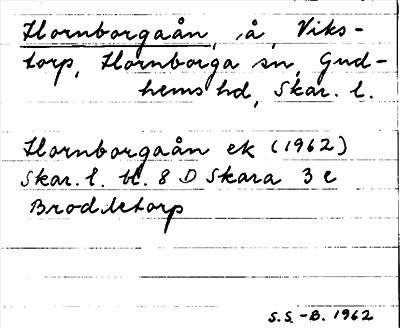 Hornborgaån, å, Viks-
torp, Hornborga sn, Gud-
hems hd, Skar. l.
Hornborgaån ek (1962)
Skar. l. bl. 8 D Skara 3 e
Broddetorp
S.S.-B. 1962